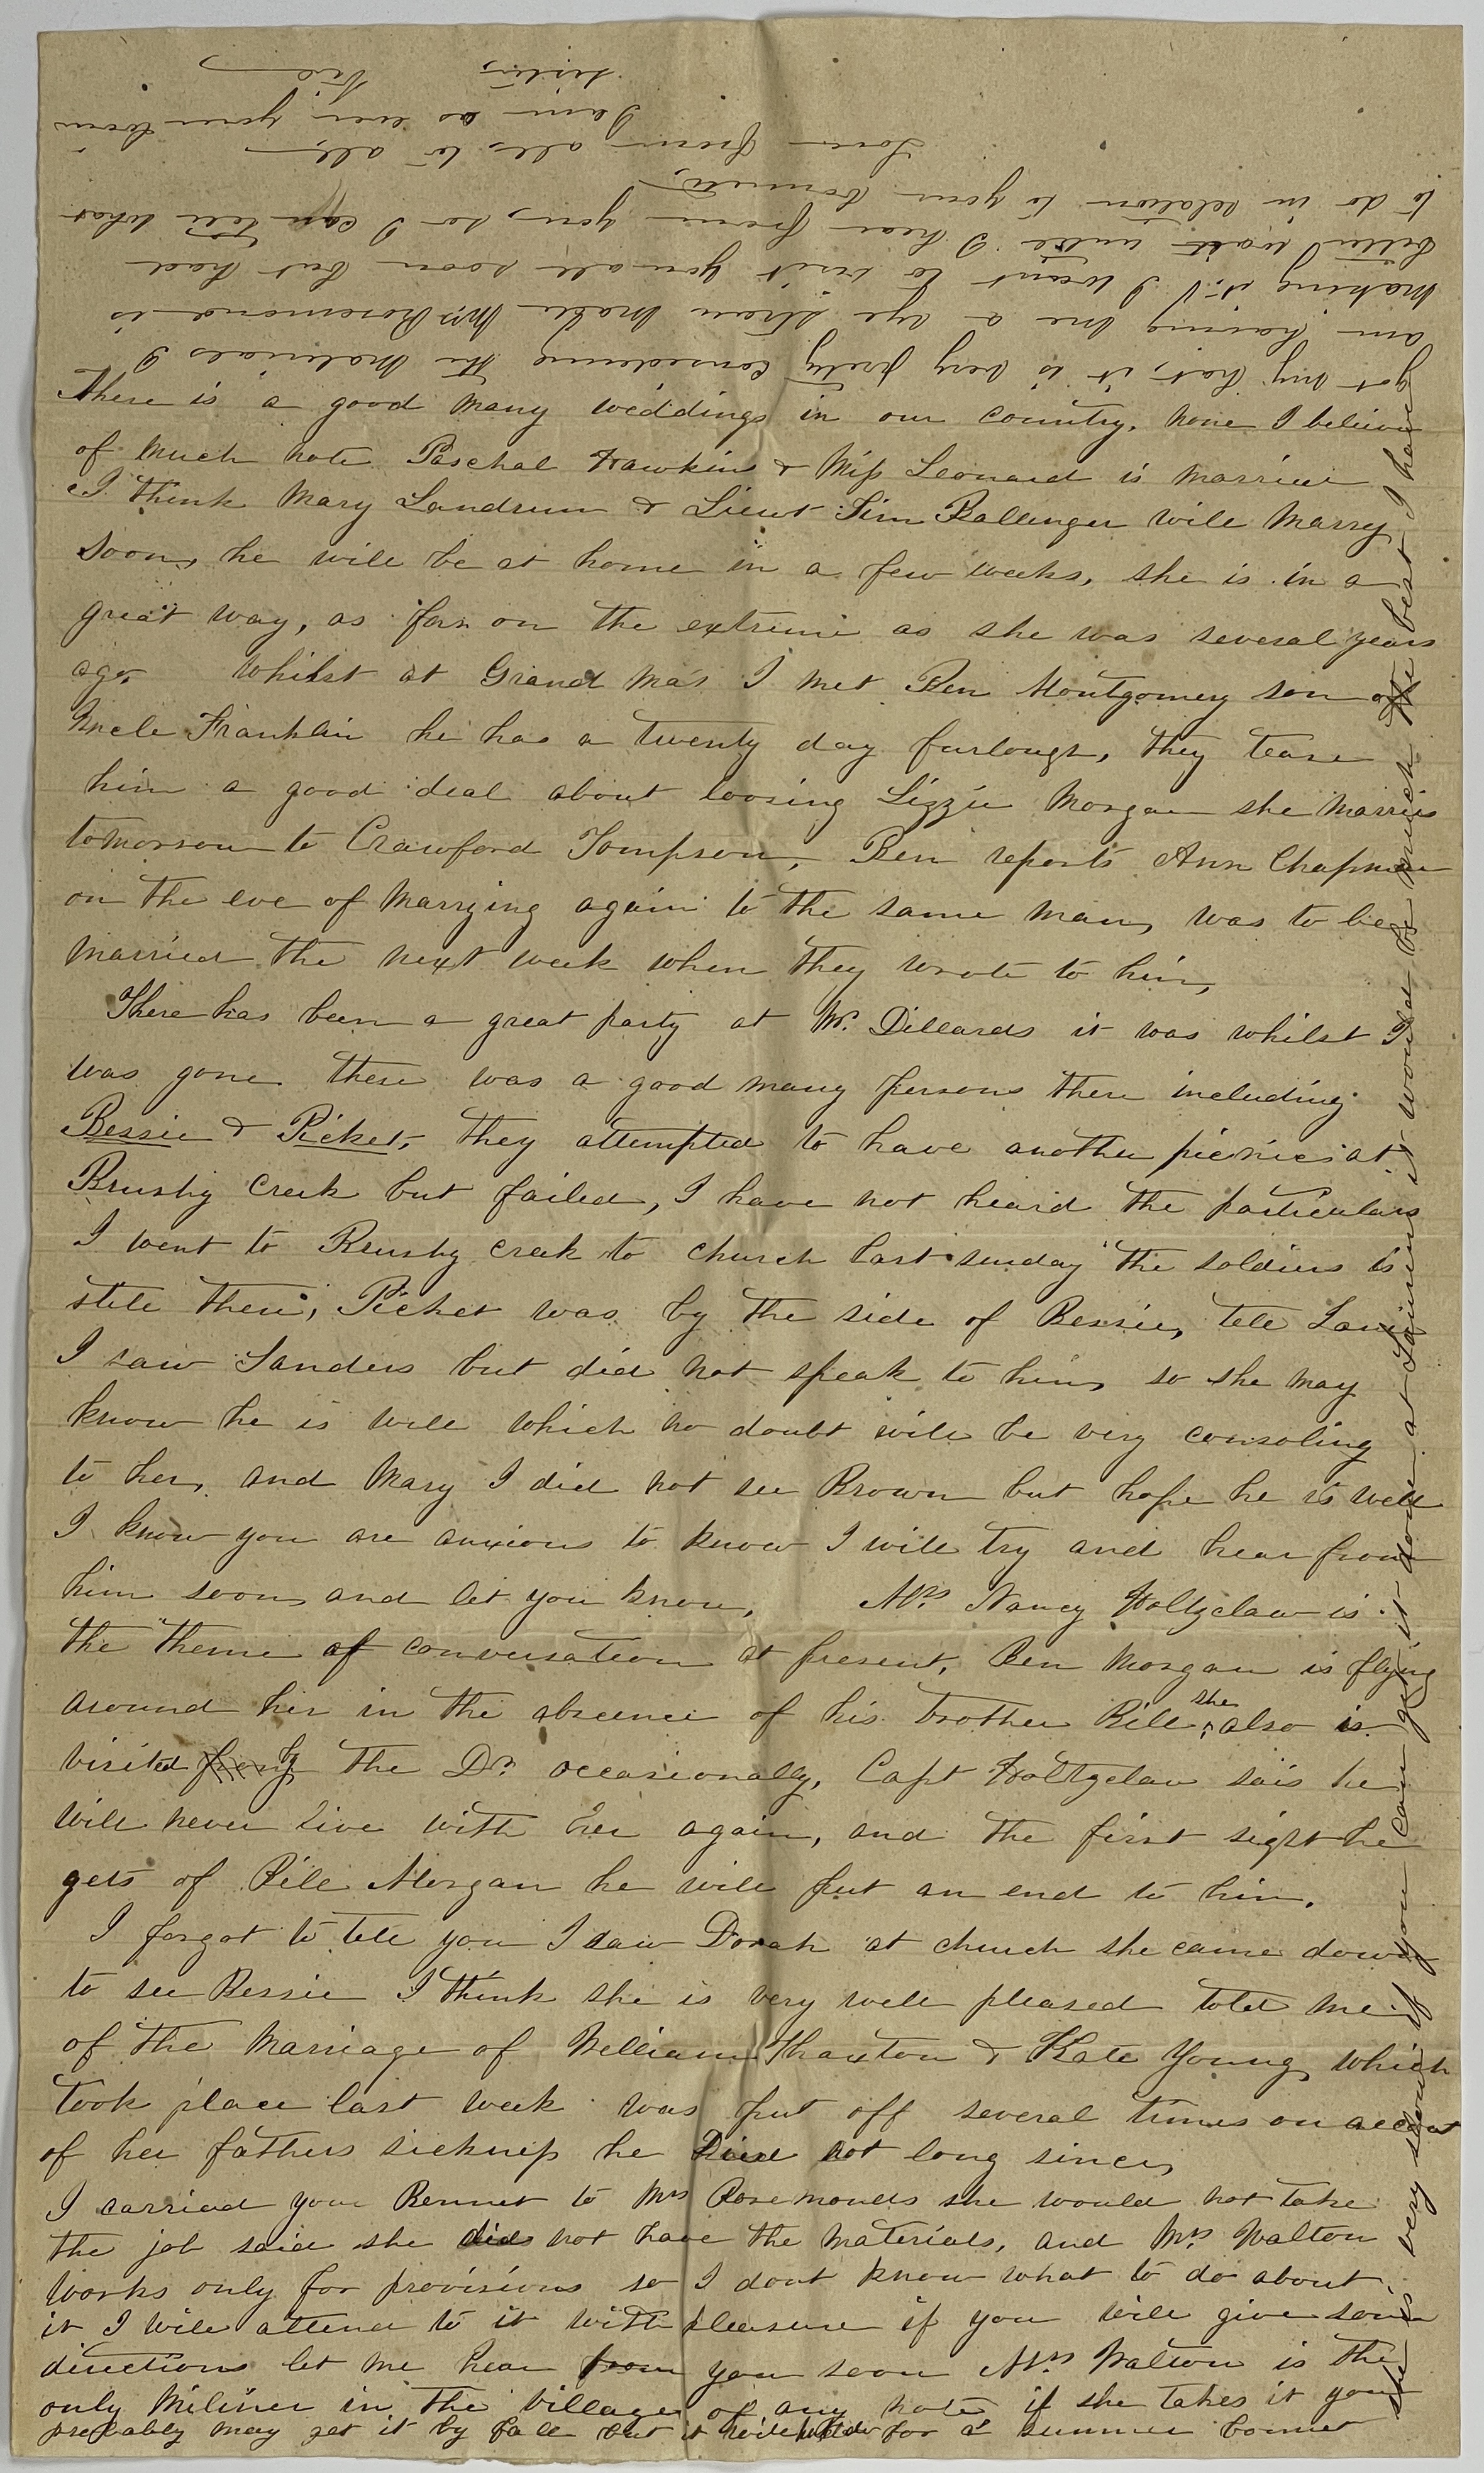 There is a good many weddings in our country, none I believe
of much note Paschal Hawkins & Miss Leonard is married
I think Mary Landrum & Lieut Jim Ballenger will marry
soon, he will be at home in a few weeks, she is in a
great way, as far on the extreme as she was several years
ago, Whilst at Grand Ma's I met Ben Montgomery son of
Uncle Franklin he has a twenty day furlough, they tease
him a good deal about loosing Lizzie Morgan she marries
tomorrow to Crawford Tompson, Ben reports Ann Chapman
on the eve of marrying again to the same man, was to be
married the next week when they wrote to him,
There has been a great party at Mr. Dillards it was whilst I
was gone there was a good many persons there including
Bessie & Picket, they attempted to have another picnic at
Brushy Creek but failed, I have not heard the particulars
I went to Brushy creek to church last sunday the soldiers is
still there, Picket was by the side of Bessie, tell
I saw Sanders but did not speak to him, so she may
know he is well which no doubt will be very consoling
to her, and Mary I did not see Brown but hope he is well
I know you are anxious to know I will try and hear from
him soon, and let you know, Mrs Nancy Holtzclaw is
the theme of conversation at present, Ben Morgan is flying
around her in the absence of his brother Bill, she also is
visited by the Dr. occasionally, Capt Holtzclaw sais he
will never live with her again, and the first sight he
gets of Bill Morgan he will put an end to him,
I forgot to tell you I saw Dorah at church she came down
to see Bessie I think she is very well pleased told me
of the Marriage of William Thaxton & Kate Young, which
took place last week was put off several times on account
of her fathers sickness he Died not long since,
I carried your Bonnet to Mrs Rosemonds she would not take
the job said she did not have the materials, and Mrs Walton
works only for provisions so I dont know what to do about
it I will attend to it with pleasure if you will give some
directions let me hear from you soon Mrs Walton is the
only Miliner in the village of any note if she takes it you
probably may get it by fall but it will for a summer bonnet
she is very slow if you can get it done at it would be much the best I have
got my hat, it is very prety considering the Materials I
am having me a rye straw made Mrs Rosemond is
making it. I want to visit you all soon but had
better wait until I hear from you, so I can tell what
to do in relation to your bonnet,
Love from all to all,
I am as ever your
sister,